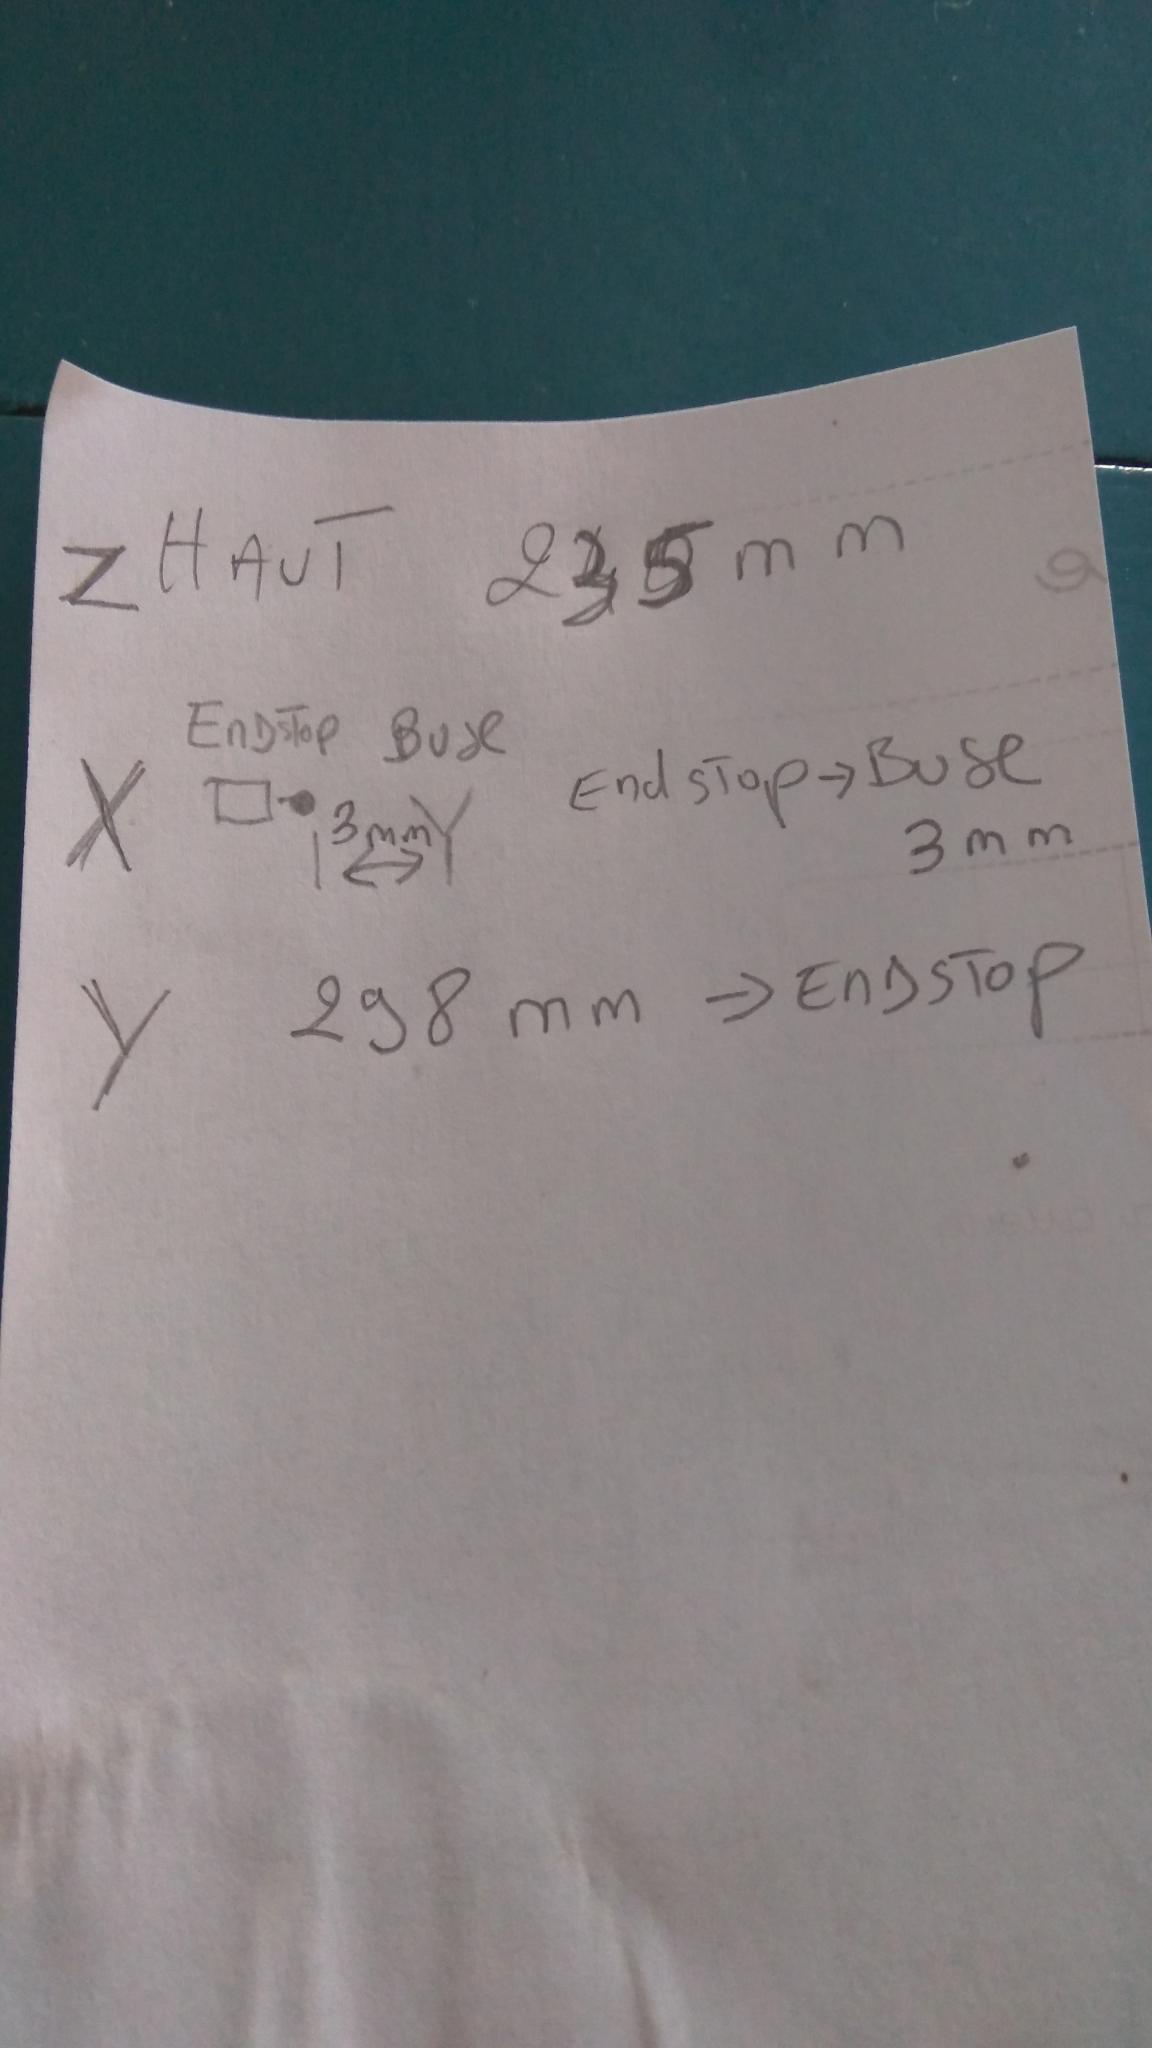 Z HAUT 235 mm
EnDSTop BUSE
X 3mm EndSTOp → BUSE
3 mm
Y 298 mm → EnDSTOp